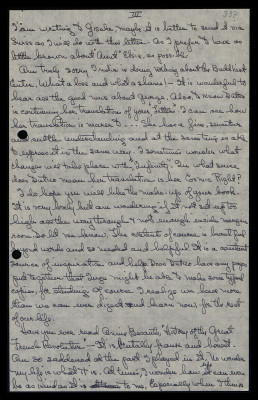 III
I am writing to Gisela maybe it is better to send it via
Swiss as I will do with this letter. As I prefer to have as
little known about Aunt Elsie as possible.
Am truly sorry Indra is doing nothing about the Buddhist
Center. What a loss and what a shame! - It is wonderful to
hear all the good news about Gunga. Also, to know Dutes
is continuing her translation of your "letters." I can see how
the translation is made. She has a fine, sensitive
and subtle understanding and at the same time is able
to express it in the same way. I sometimes wonder what
changes will take place with "Infinity". In what sense,
does Dutes mean her translation is her Cosmic Right?
I do hope you will like the make-up of your book.
It is very lovely but am wondering if it is not set up too
high on the way through & not enough inside margin
room. So let me know. The content of course is beautiful
beyond words and so needed and helpful. It is a constant
source of inspiration and help. Does Dutes have any pages
put together that Gunga might be able to make some typed
copies for studying. Of course I realize we have more
than we can ever digest and learn now, for the rest
of our life.
Have you ever read Annie Besant's, "History of the Great
French Revolution" - It is brutally frank and honest.
Am so saddened at the part I played in it. No wonder
my life is what it is. At times I wonder how that can ever
be as kind as it is to me. Especially when I think